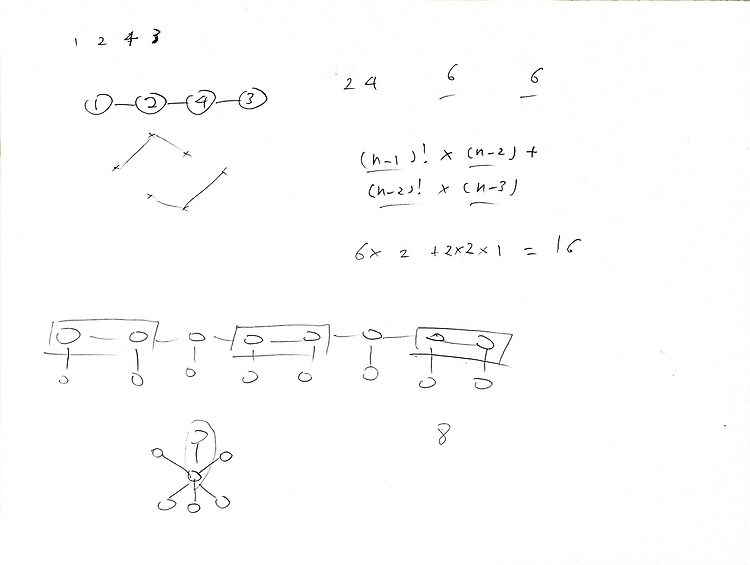 1 2 4 3
1 2 4 3
24 6 6
(n-1)! × (n-2) +
(n-2)! × (n-3)
6× 2 +2×2×1 = 16
8